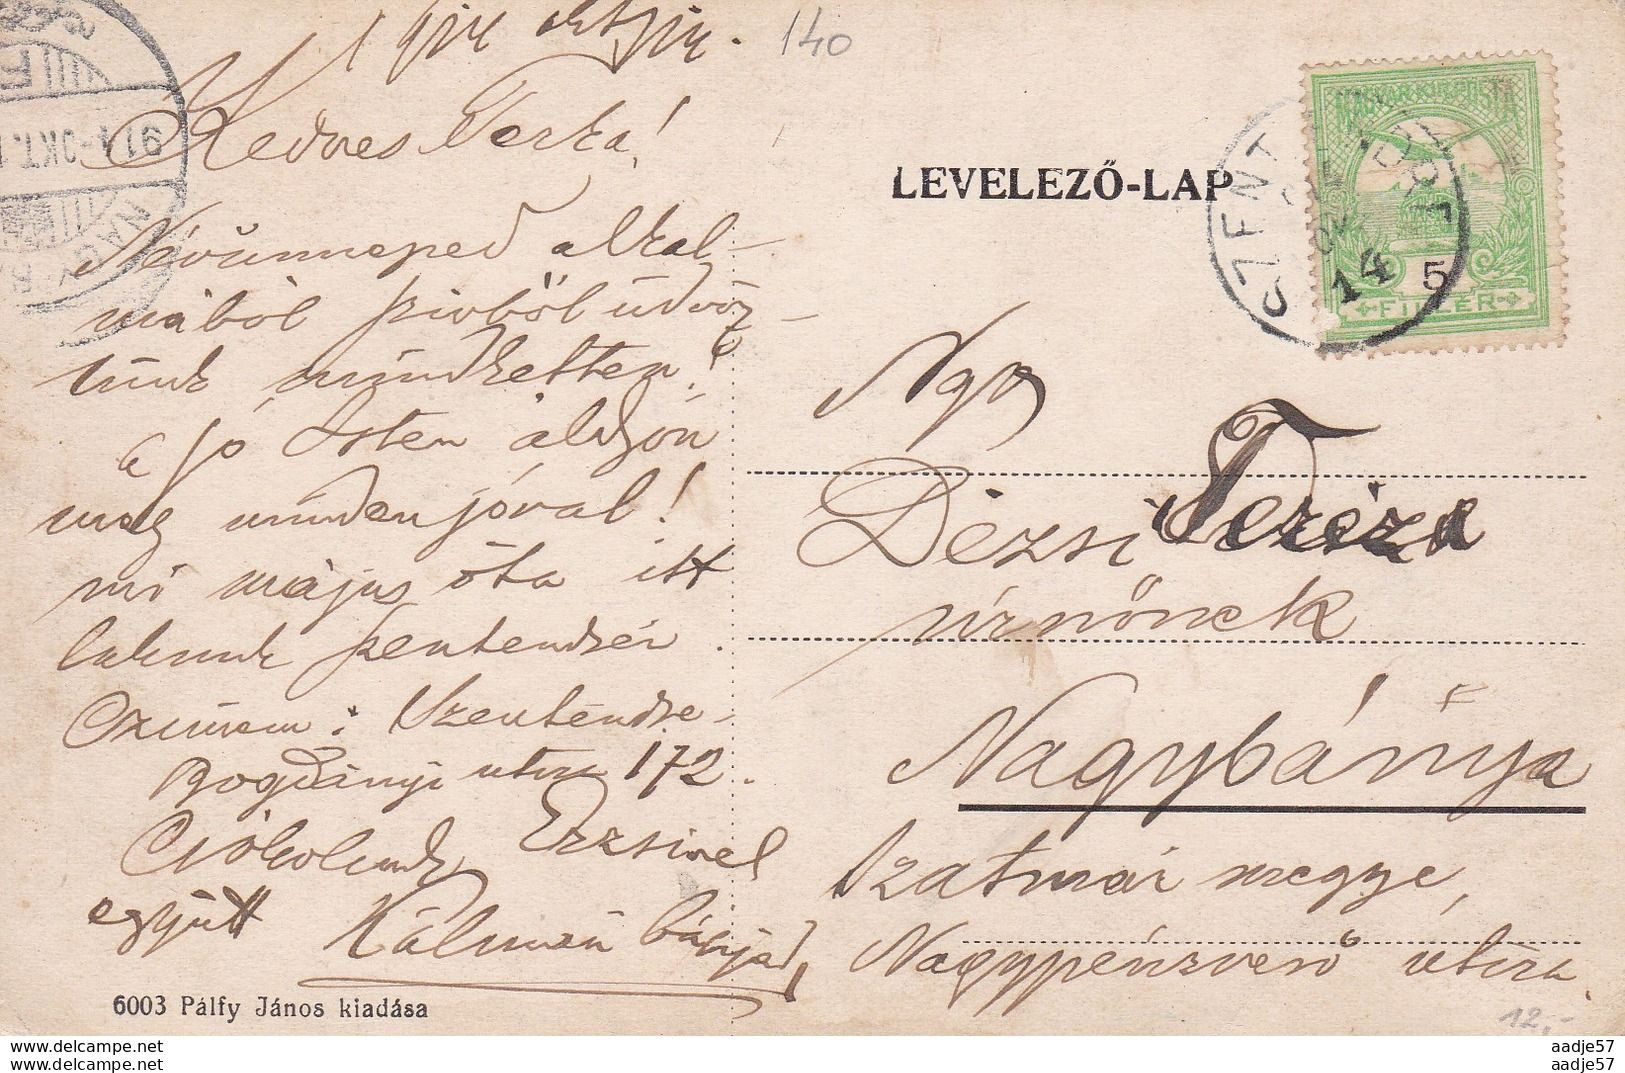 140
Kedves Terka!
Névünneped alkal-
mából szivből üdvöz-
lünk mindketten!
a jó Isten áldjon
meg minden jóval!
mi május óta itt
lakunk Szentendrén.
Czimem: Szentendre
Bogdányi utcza 172.
Csókolunk Erzsivel
együtt Kálmán bátyád
6003 Pálfy János kiadása
LEVELEZŐ-LAP
MAGYAR KIR. POSTA
5
FILLÉR
SZENT
14
914 OKT.
NAGY
Ngs
Dézsi Teréza
úrnőnek
Nagybánya
Szatmár megye,
Nagypénzverő utcza.
12,-
www.delcampe.net
aadje57
www.delcampe.net
aadje57